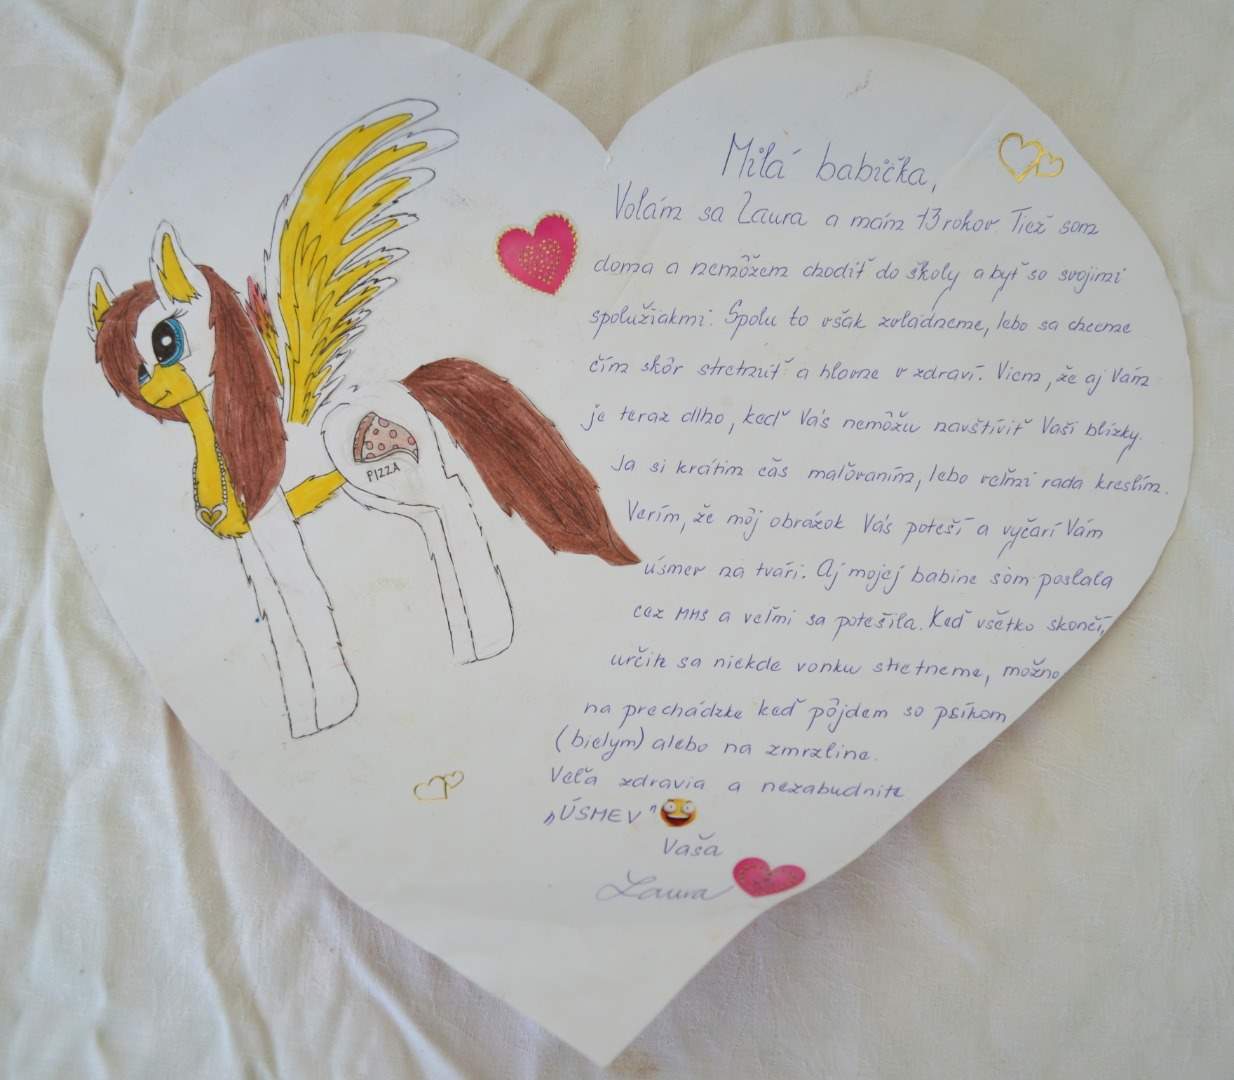 Milá babička,
Volám sa Laura a mám 13 rokov Tiež som
doma a nemôžem chodiť do školy a byť so svojimi
spolužiakmi. Spolu to však zvládneme, lebo sa chceme
čím skôr stretnúť a hlavne v zdraví. Viem, že aj Vám
je teraz dlho, keď Vás nemôžu navštíviť Vaši blízky.
Ja si krátim čas maľovaním, lebo veľmi rada kreslím.
Verím, že môj obrázok Vás poteší a vyčarí Vám
úsmev na tvári. Aj mojej babine som poslala
cez MMS a veľmi sa potešila. Keď všetko skončí,
určite sa niekde vonku stretneme, možno
na prechádzke keď pôjdem so psíkom
(bielym) alebo na zmrzline.
Veľa zdravia a nezabudnite
„ÚSMEV"
Vaša
Laura
PIZZA